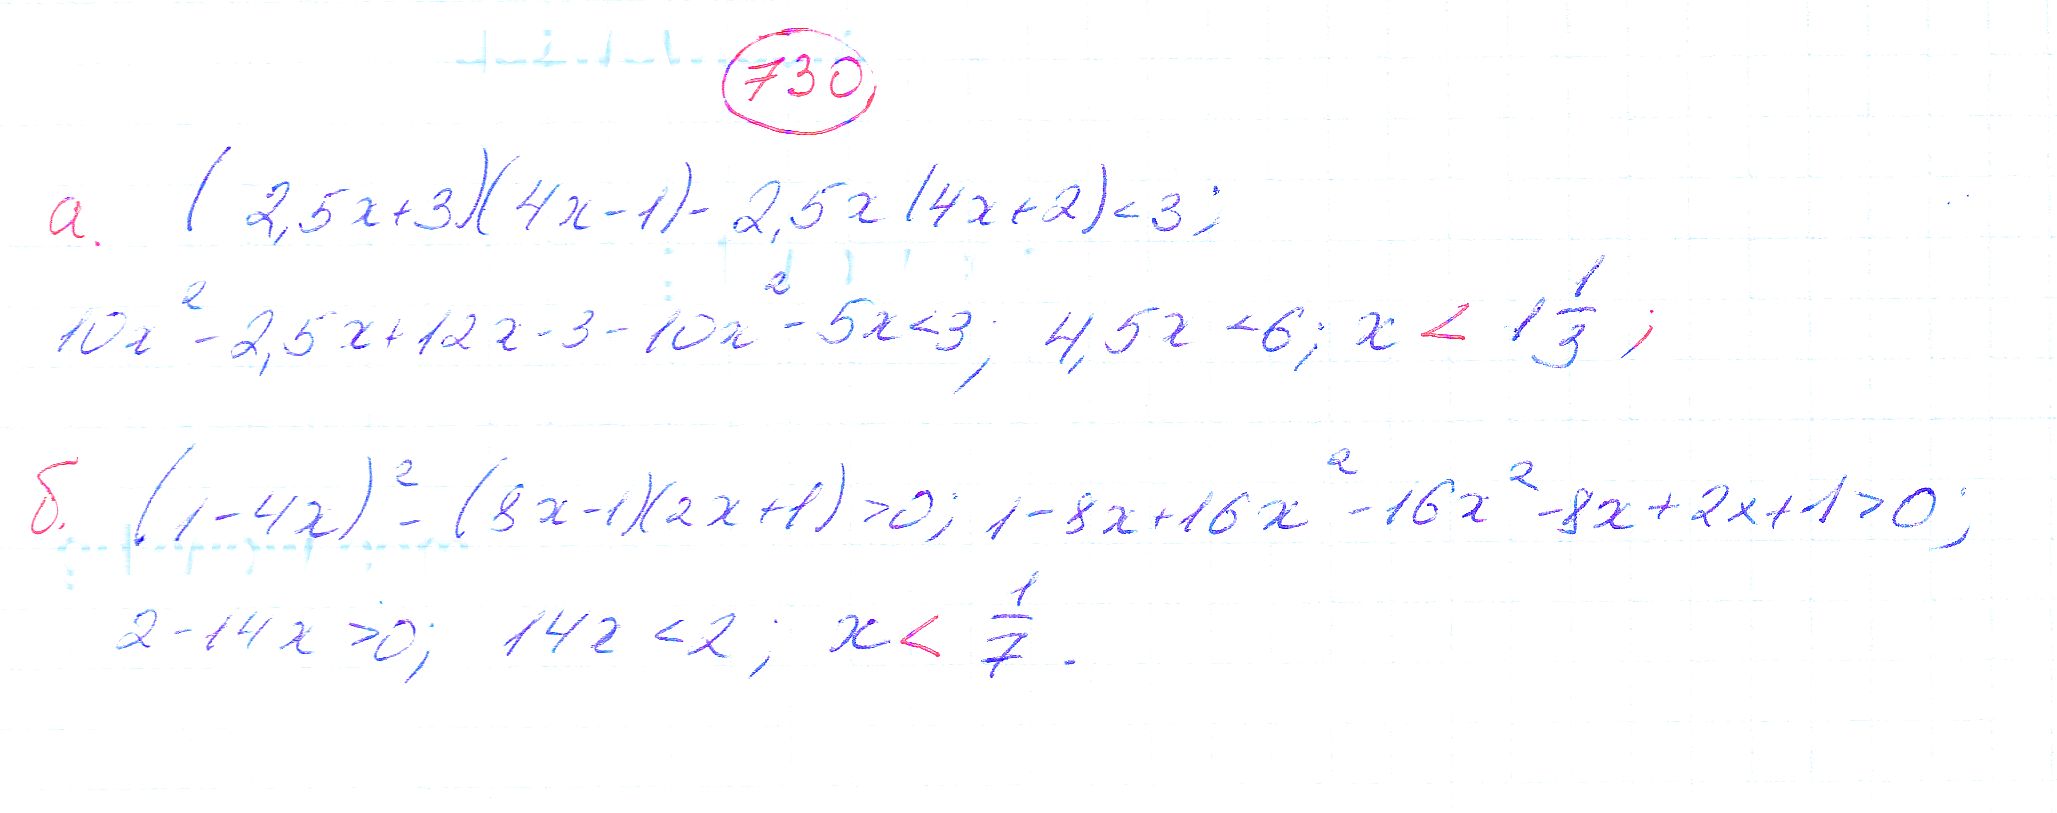 730
а. (2,5x+3)(4x-1)-2,5x(4x+2)<3;
10x²-2,5x+12x-3-10x²-5x<3; 4,5x<6; x < 1 1/3;
б. (1-4x)²-(8x-1)(2x+1)>0; 1-8x+16x²-16x²-8x+2x+1>0;
2-14x>0; 14x<2; x< 1/7.